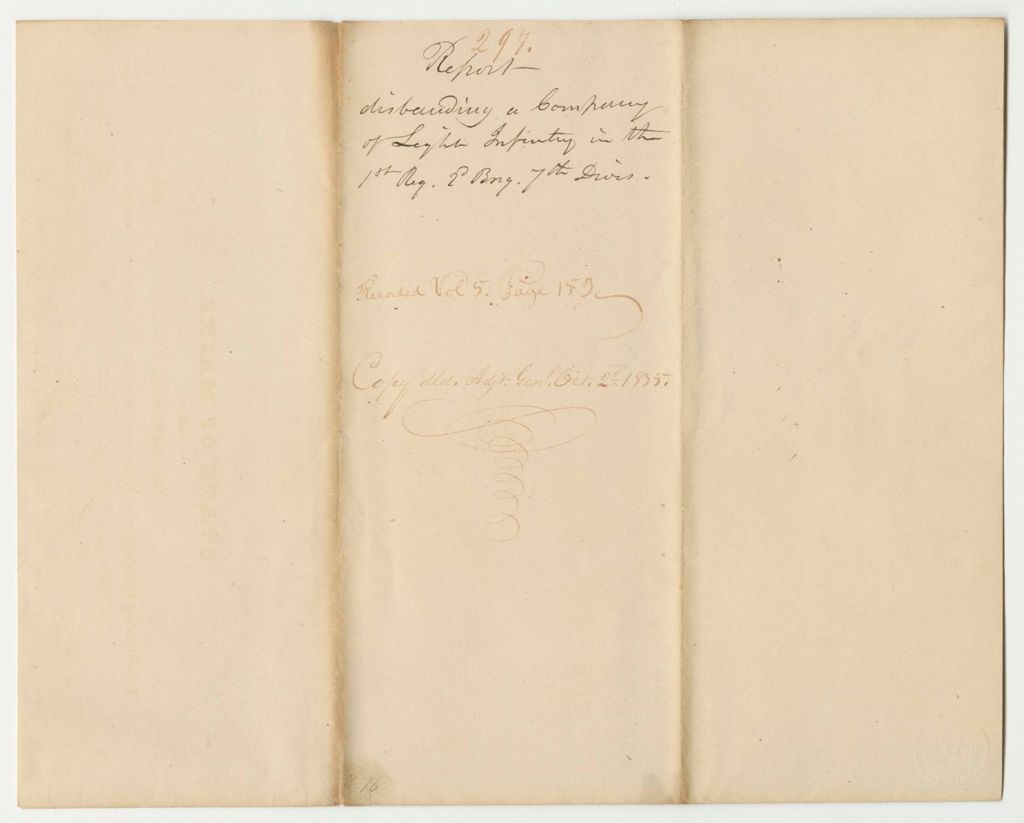 297.
Report
disbanding a Company
of Light Infantry in the
1st Reg. 2d Brig. 7th Divis.
Recorded Vol 5. Page 153
Copy dld. Adjt. Genl. Oct. 2d. 1835.
76